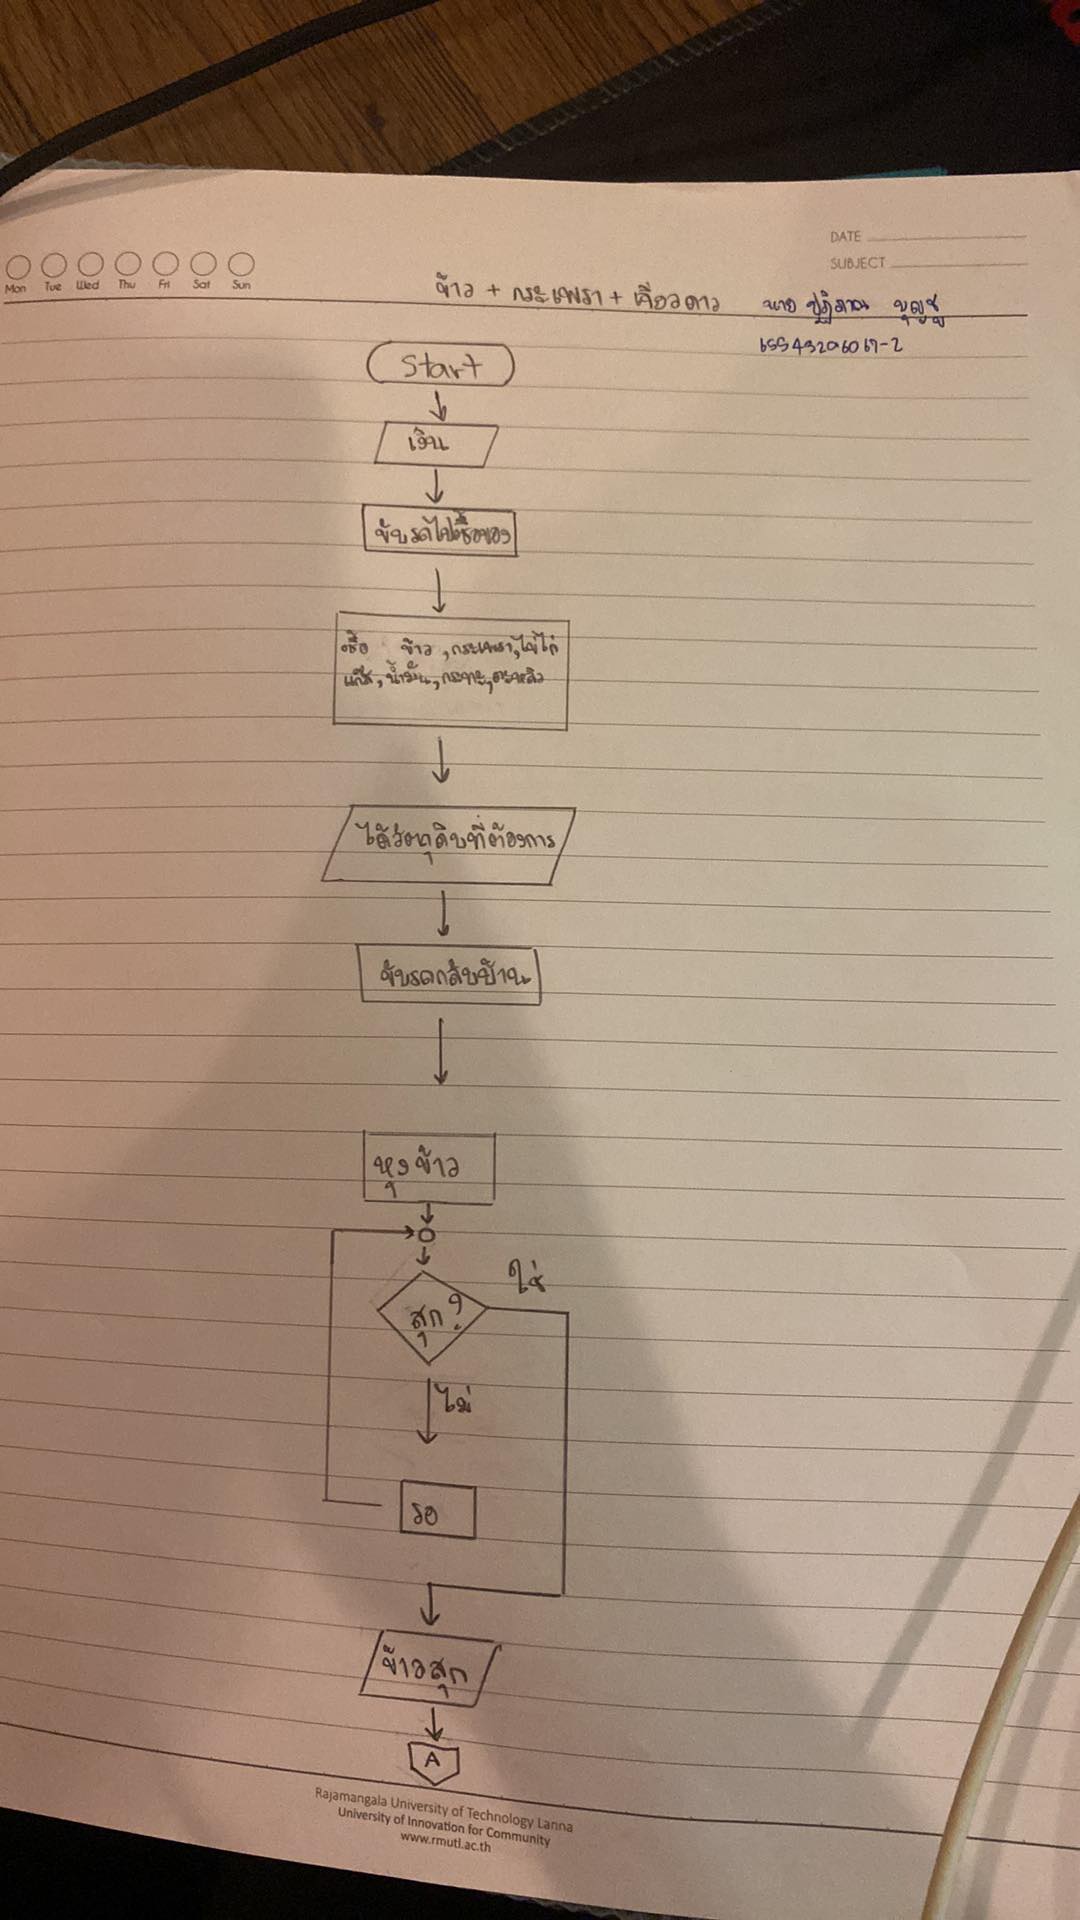 DATE
SUBJECT
Mon Tue Wed Thu Fri Sat Sun
ข้าว + กระเพรา + เคียวดาว นาย ปฏิภาณ บุญชู
65543206067-2
Start
เงิน
ขับรถไปซื้อของ
ซื้อ ข้าว, กระเพรา, ไข่ไก่
แก๊ส, น้ำมัน, กระทะ, ตะหลิว
ได้วัตถุดิบที่ต้องการ
ขับรถกลับบ้าน
หุงข้าว
ใช่
สุก?
ไม่
รอ
ข้าวสุก
A
Rajamangala University of Technology Lanna
University of Innovation for Community
www.rmutl.ac.th